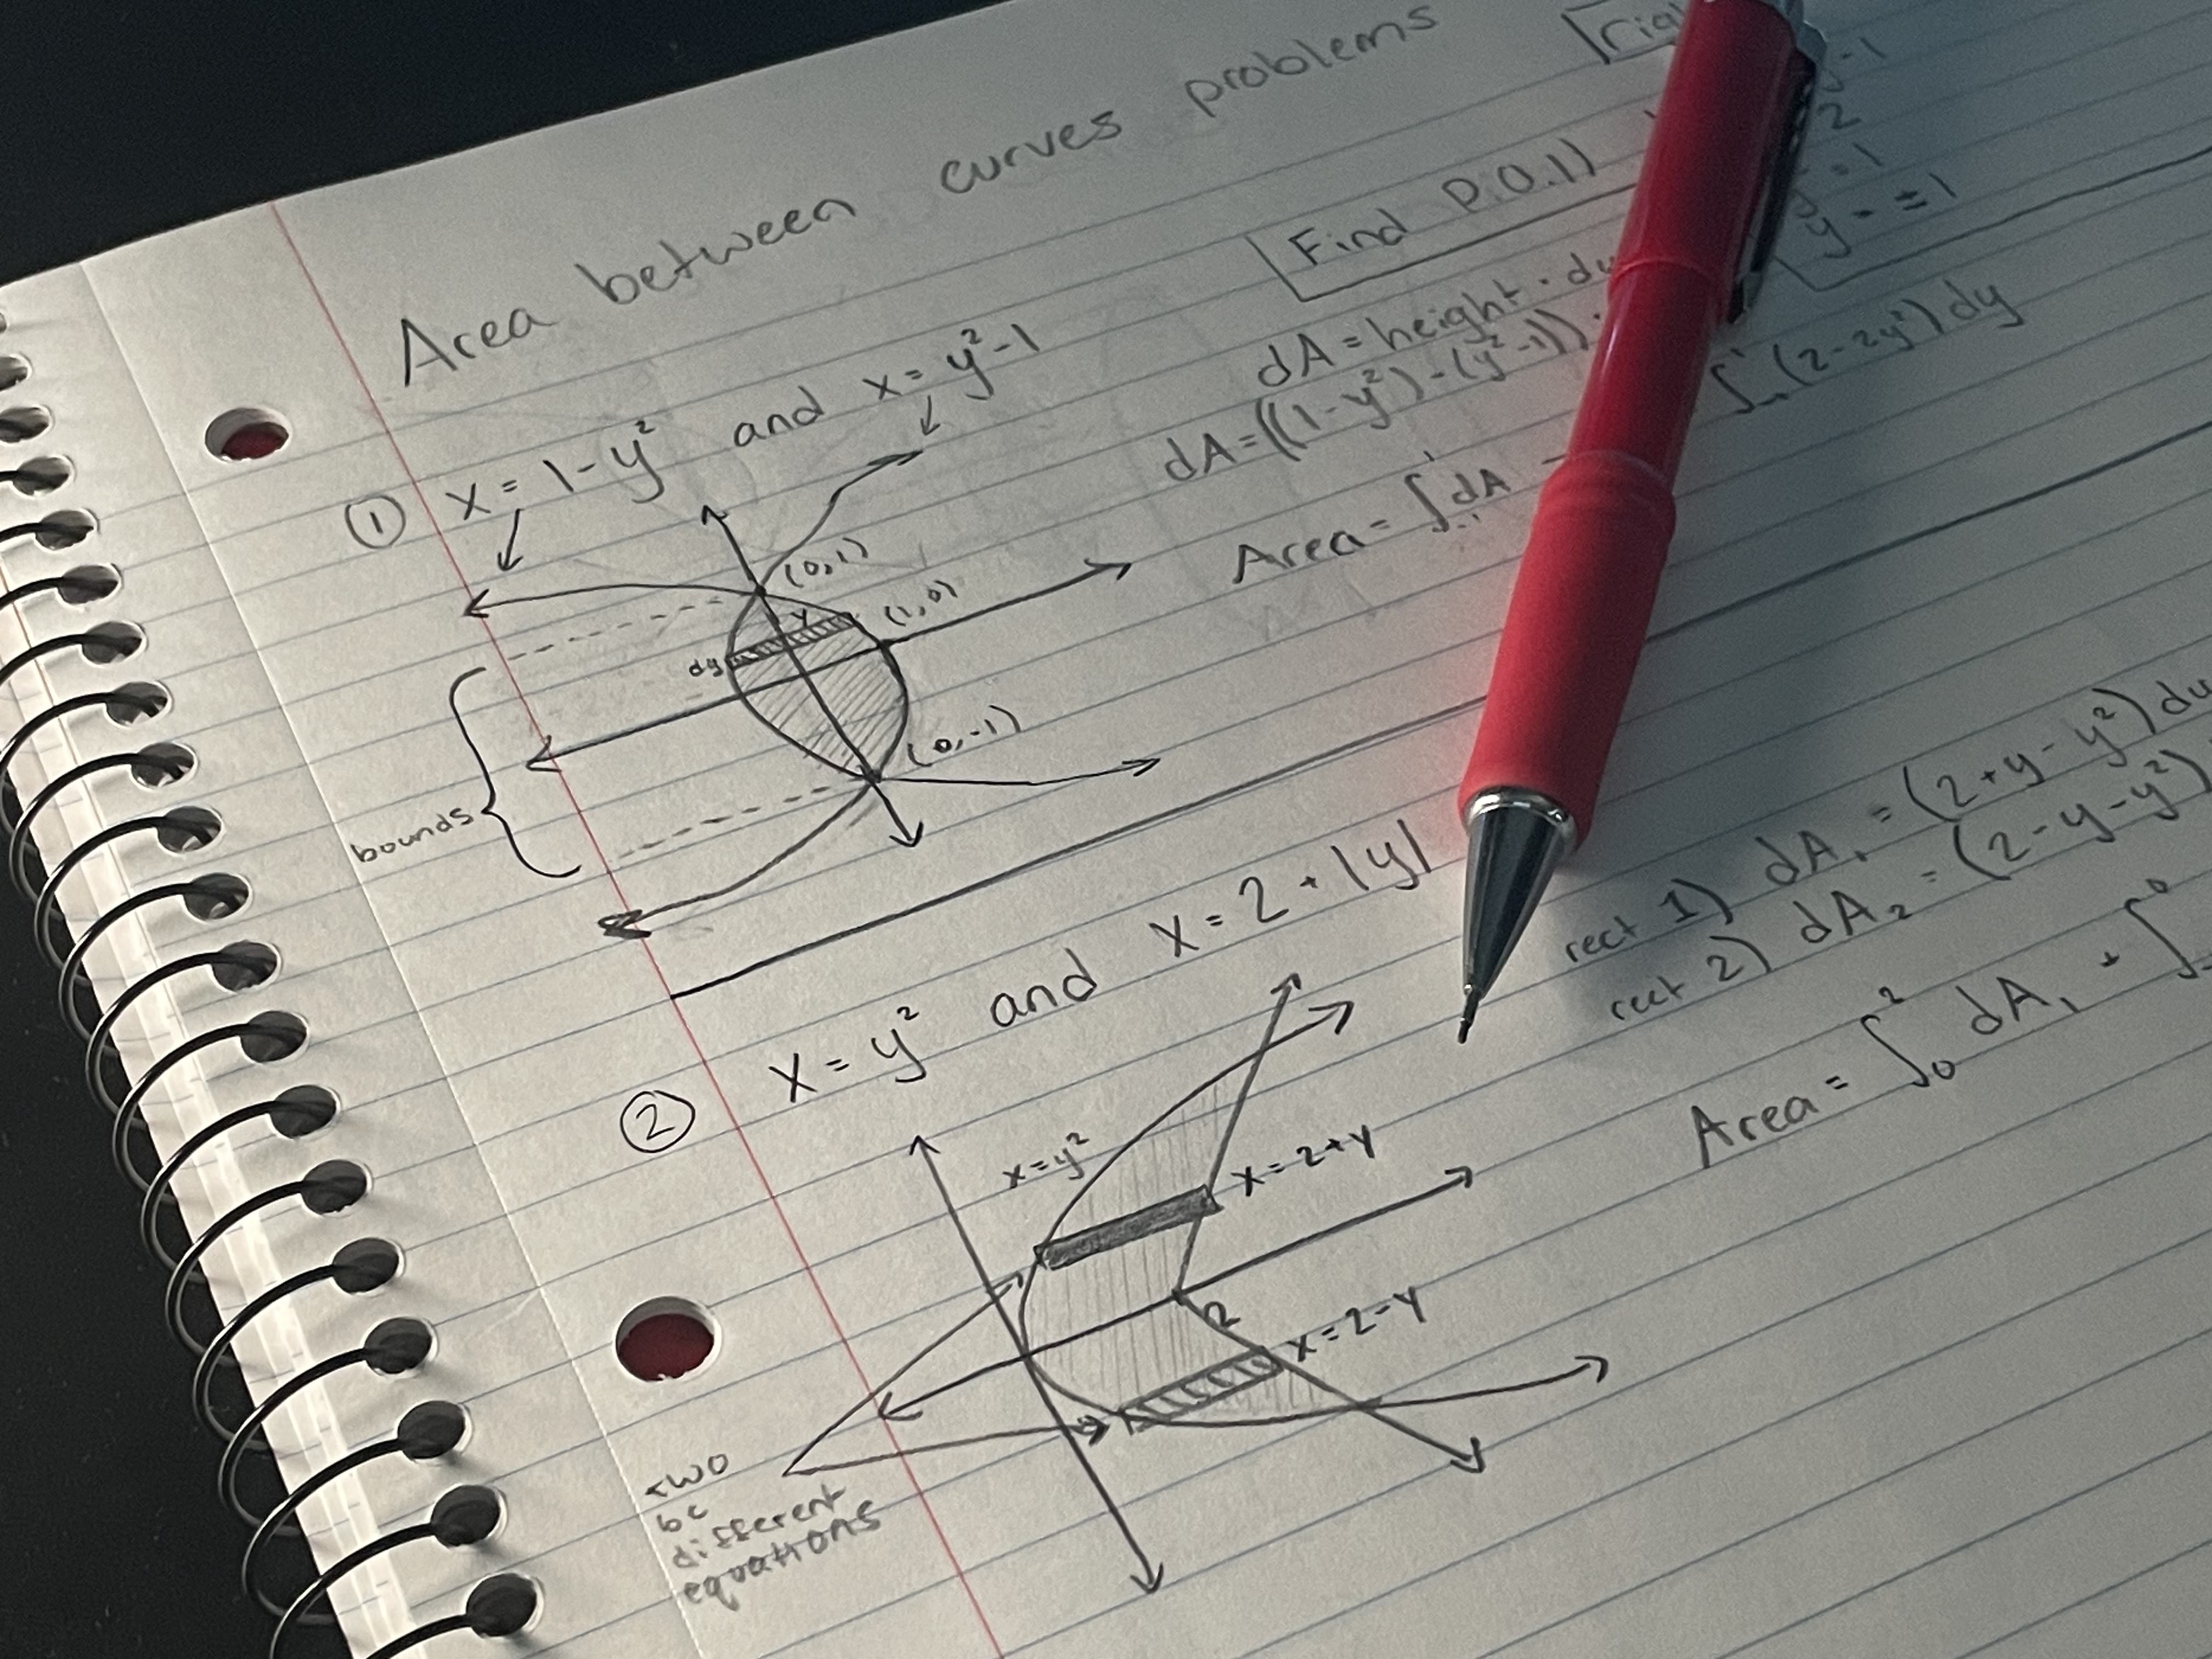 Area between curves problems
① x = 1 - y² and x = y² - 1
(0,1)
(1,0)
dy
(0,-1)
bounds
Find P.O.I)
y = ±1
dA = height · dy
dA = ((1-y²) - (y²-1)) ·
Area = ∫₋₁¹ dA
∫₋₁¹ (2-2y²) dy
② x = y² and x = 2 + |y|
x = y²
x = 2+y
2
x = 2-y
two
bc
different
equations
rect 1) dA₁ = (2+y-y²) dy
rect 2) dA₂ = (2-y-y²)
Area = ∫₀² dA₁ + ∫